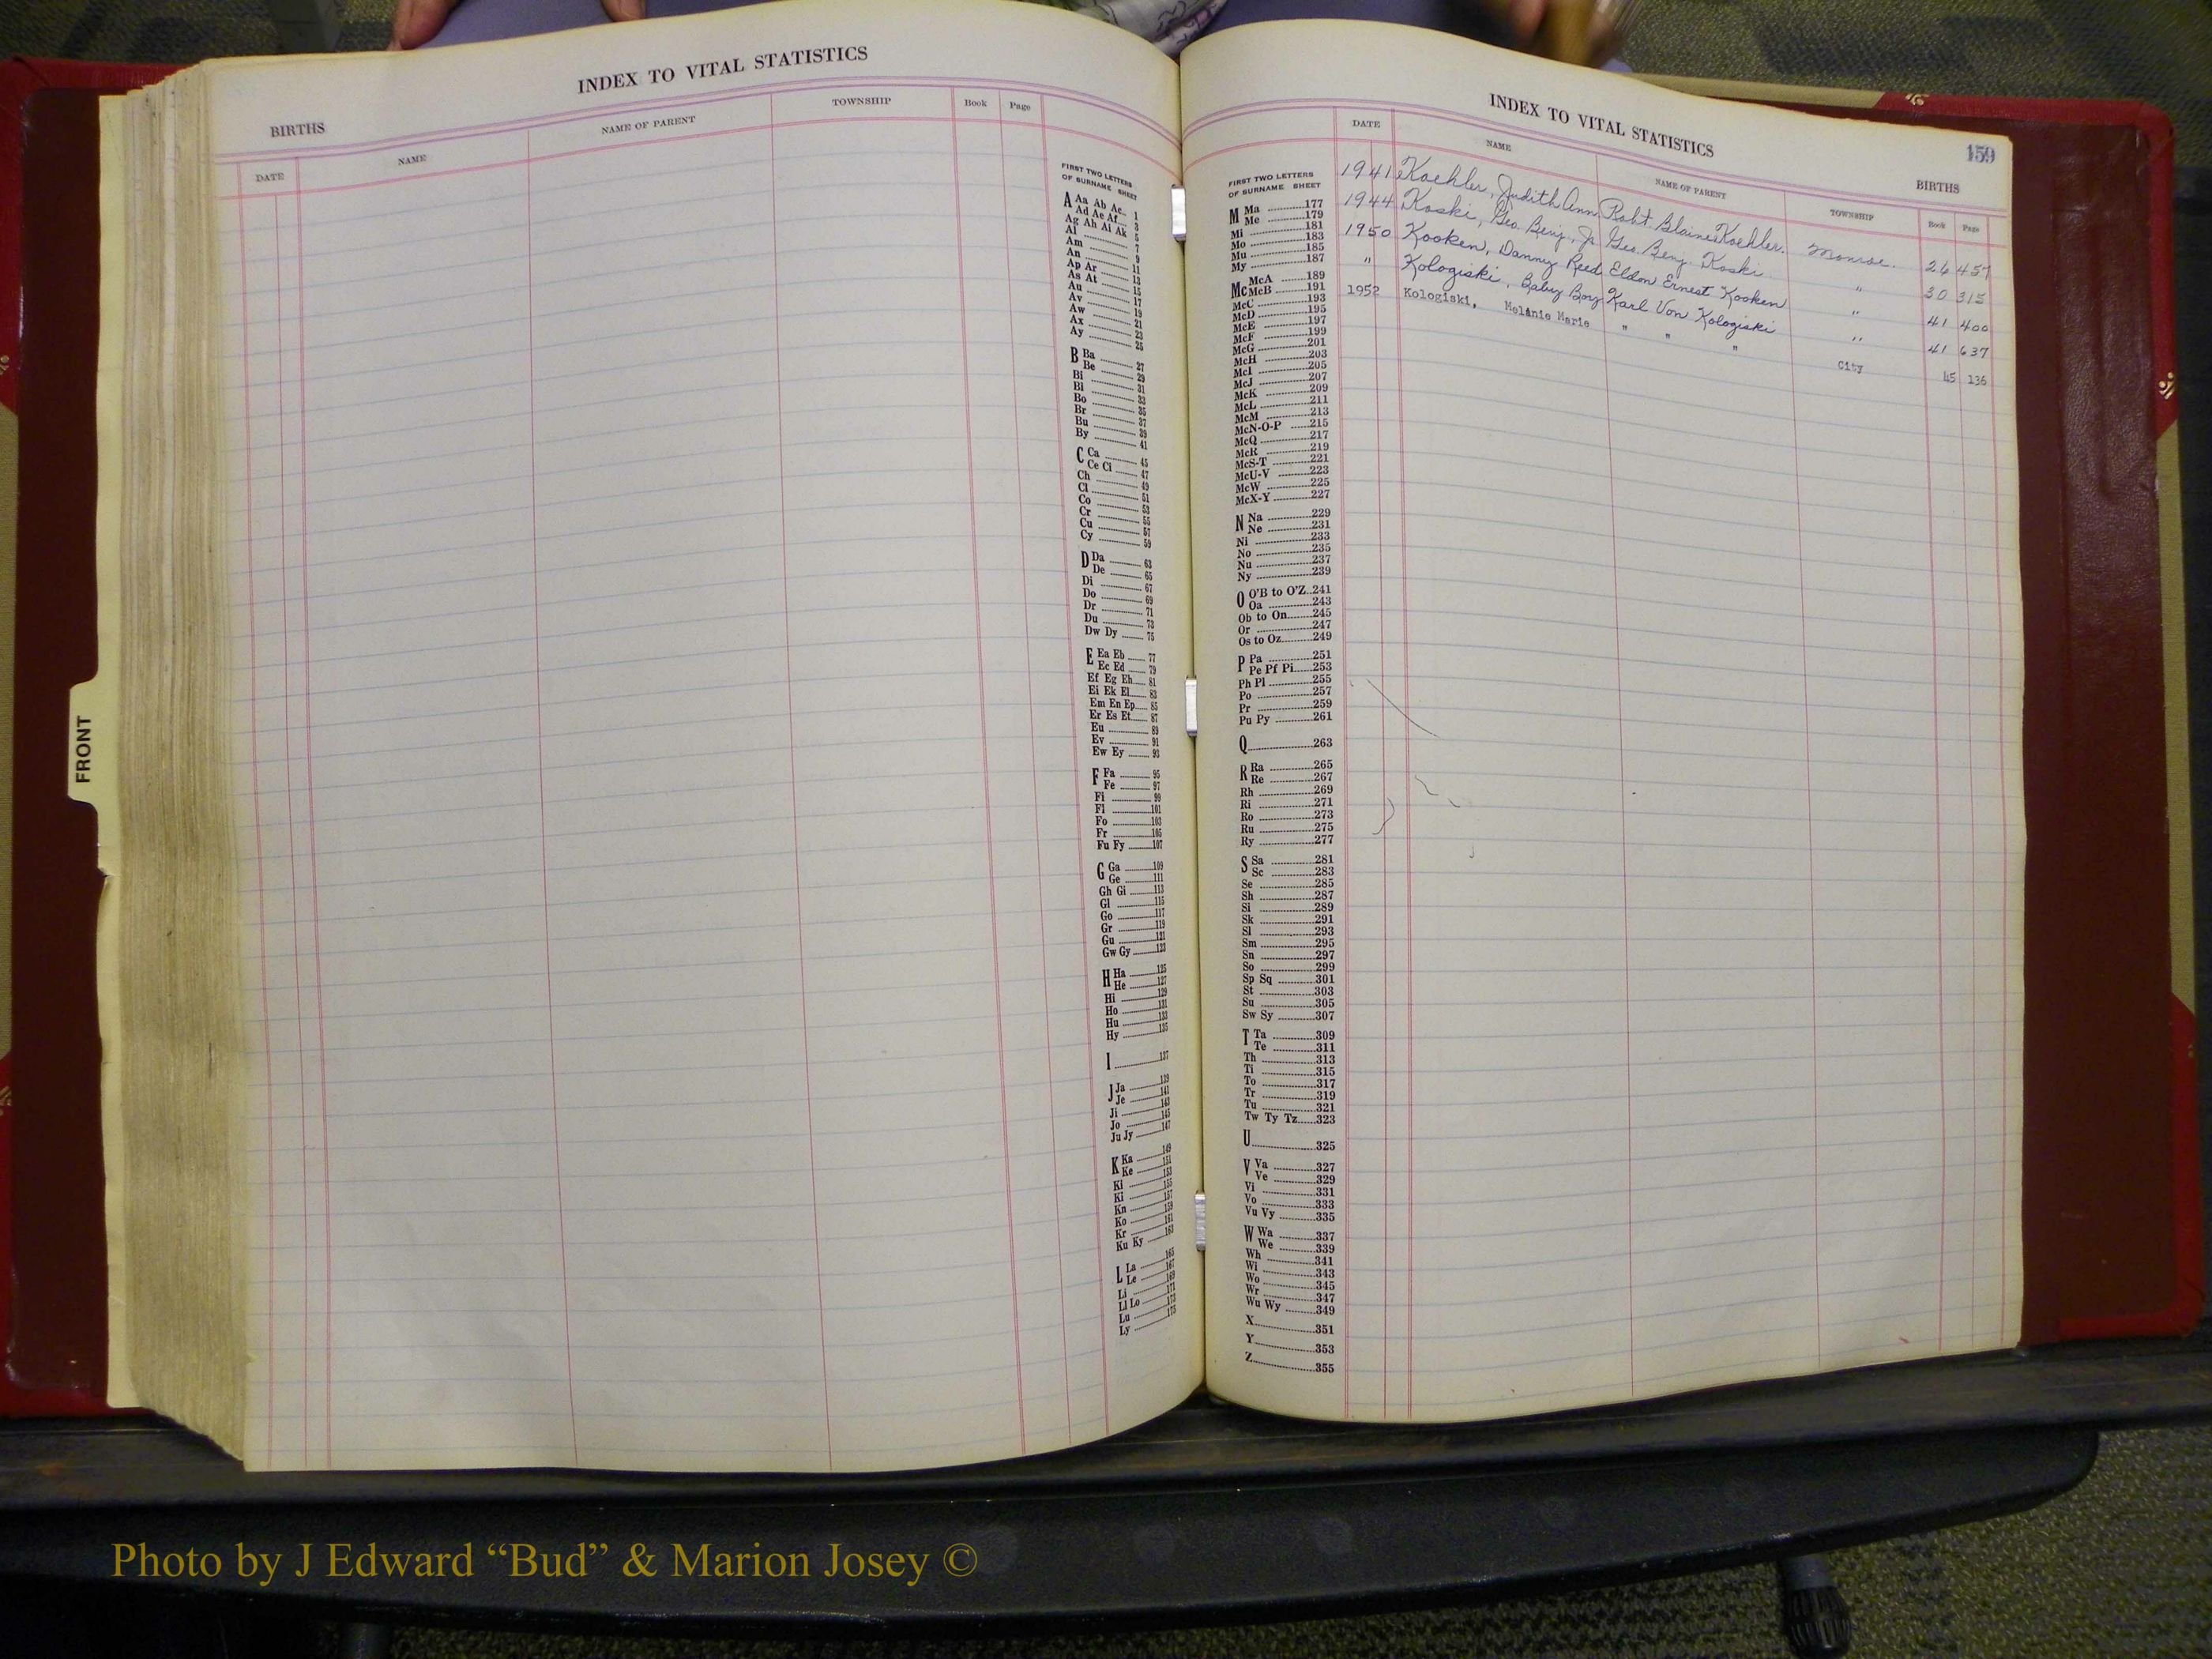 INDEX TO VITAL STATISTICS
BIRTHS
DATE NAME NAME OF PARENT TOWNSHIP Book Page
FIRST TWO LETTERS
OF SURNAME SHEET
A Aa Ab Ac 1
Ad Ae Af 3
Ag Ah Ai Ak 5
Al 7
Am 9
An 11
Ap Ar 13
As At 15
Au 17
Av 19
Aw 21
Ax 23
Ay 25
B Ba 27
Be 29
Bi 31
Bl 33
Bo 35
Br 37
Bu 39
By 41
C Ca 45
Ce Ci 47
Ch 49
Cl 51
Co 53
Cr 55
Cu 57
Cy 59
D Da 63
De 65
Di 67
Do 69
Dr 71
Du 73
Dw Dy 75
E Ea Eb 77
Ec Ed 79
Ef Eg Eh 81
Ei Ek El 83
Em En Ep 85
Er Es Et 87
Eu 89
Ev 91
Ew Ey 93
F Fa 95
Fe 97
Fi 99
Fl 101
Fo 103
Fr 105
Fu Fy 107
G Ga 109
Ge 111
Gh Gi 113
Gl 115
Go 117
Gr 119
Gu 121
Gw Gy 123
H Ha 125
He 127
Hi 129
Ho 131
Hu 133
Hy 135
I 137
J Ja 139
Je 141
Ji 143
Jo 145
Ju Jy 147
K Ka 149
Ke 151
Ki 153
Kl 155
Kn 157
Ko 159
Kr 161
Ku Ky 163
L La 165
Le 167
Li 169
Ll Lo 171
Lu 173
Ly 175
FRONT
INDEX TO VITAL STATISTICS
159
BIRTHS
DATE NAME NAME OF PARENT TOWNSHIP Book Page
1941 Koehler, Judith Ann Robt. Blaine Koehler. Monroe. 26 457
1944 Koski, Geo. Benj., Jr Geo. Benj. Koski. " 30 315
1950 Kooken, Danny Reed Eldon Ernest Kooken " 41 400
" Kologiski, Baby Boy Karl Von Kologiski " 41 637
1952 Kologiski, Melanie Marie " " " City 45 136
FIRST TWO LETTERS
OF SURNAME SHEET
M Ma 177
Me 179
Mi 181
Mo 183
Mu 185
My 187
Mc McA 189
McB 191
McC 193
McD 195
McE 197
McF 199
McG 201
McH 203
McI 205
McJ 207
McK 209
McL 211
McM 213
McN-O-P 215
McQ 217
McR 219
McS-T 221
McU-V 223
McW 225
McX-Y 227
N Na 229
Ne 231
Ni 233
No 235
Nu 237
Ny 239
O O'B to O'Z 241
Oa 243
Ob to On 245
Or 247
Os to Oz 249
P Pa 251
Pe Pf Pi 253
Ph Pl 255
Po 257
Pr 259
Pu Py 261
Q 263
R Ra 265
Re 267
Rh 269
Ri 271
Ro 273
Ru 275
Ry 277
S Sa 281
Sc 283
Se 285
Sh 287
Si 289
Sk 291
Sl 293
Sm 295
Sn 297
So 299
Sp Sq 301
St 303
Su 305
Sw Sy 307
T Ta 309
Te 311
Th 313
Ti 315
To 317
Tr 319
Tu 321
Tw Ty Tz 323
U 325
V Va 327
Ve 329
Vi 331
Vo 333
Vu Vy 335
W Wa 337
We 339
Wh 341
Wi 343
Wo 345
Wr 347
Wu Wy 349
X 351
Y 353
Z 355
Photo by J Edward “Bud” & Marion Josey ©